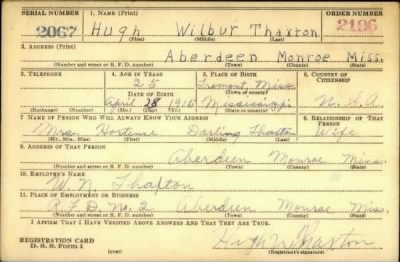 SERIAL NUMBER 1. NAME (Print) ORDER NUMBER
2067 Hugh Wilbur Thaxton 2196
(First) (Middle) (Last)
2. ADDRESS (Print)
Aberdeen Monroe Miss.
(Number and street or R. F. D. number) (Town) (County) (State)
3. TELEPHONE 4. AGE IN YEARS 5. PLACE OF BIRTH 6. COUNTRY OF CITIZENSHIP
25 Tremont, Miss.
DATE OF BIRTH (Town or county)
April 28 1915 Mississippi U. S. A.
(Exchange) (Number) (Mo.) (Day) (Yr.) (State or country)
7. NAME OF PERSON WHO WILL ALWAYS KNOW YOUR ADDRESS 8. RELATIONSHIP OF THAT PERSON
Mrs. Hortense Darling Thaxton Wife
(Mr., Mrs., Miss) (First) (Middle) (Last)
9. ADDRESS OF THAT PERSON
Aberdeen Monroe Miss.
(Number and street or R. F. D. number) (Town) (County) (State)
10. EMPLOYER'S NAME
W. N. Thaxton
11. PLACE OF EMPLOYMENT OR BUSINESS
R. F. D. No. 2 Aberdeen Monroe Miss.
(Number and street or R. F. D. number) (Town) (County) (State)
I AFFIRM THAT I HAVE VERIFIED ABOVE ANSWERS AND THAT THEY ARE TRUE.
REGISTRATION CARD
D. S. S. Form 1 Hugh W Thaxton
(Registrant's signature)